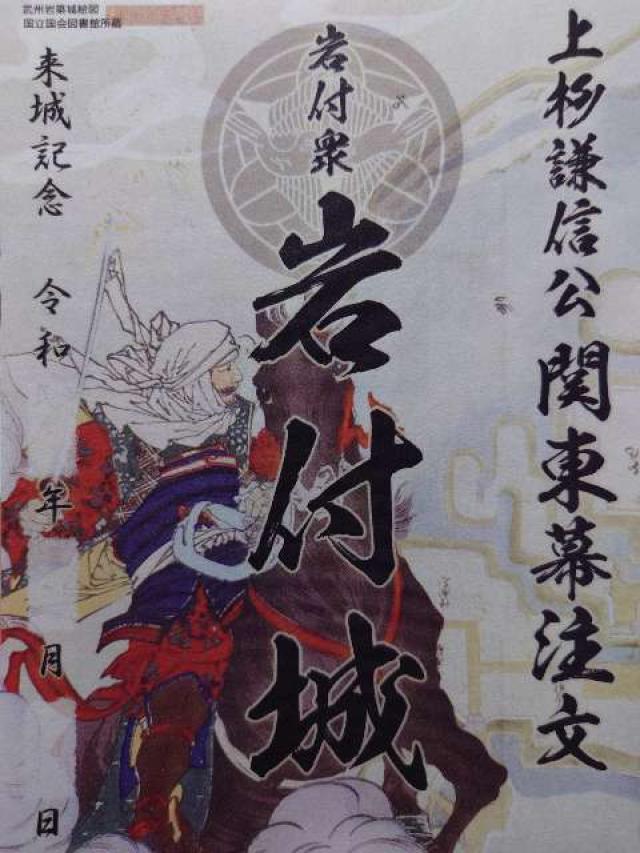 武州岩築城絵図
国立国会図書館所蔵
上杉謙信公関東幕注文
岩付衆
岩付城
来城記念 令和 年 月 日